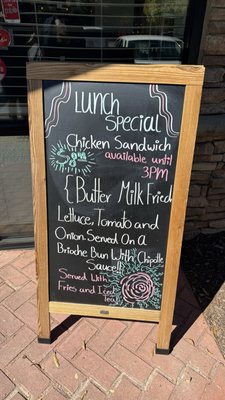 Lunch
Special
Chicken Sandwich
available until
3PM
{Butter Milk Fried
Lettuce, Tomato and
Onion Served On A
Brioche Bun With Chipotle
Sauce!!
Served With
Fries and Iced
Tea